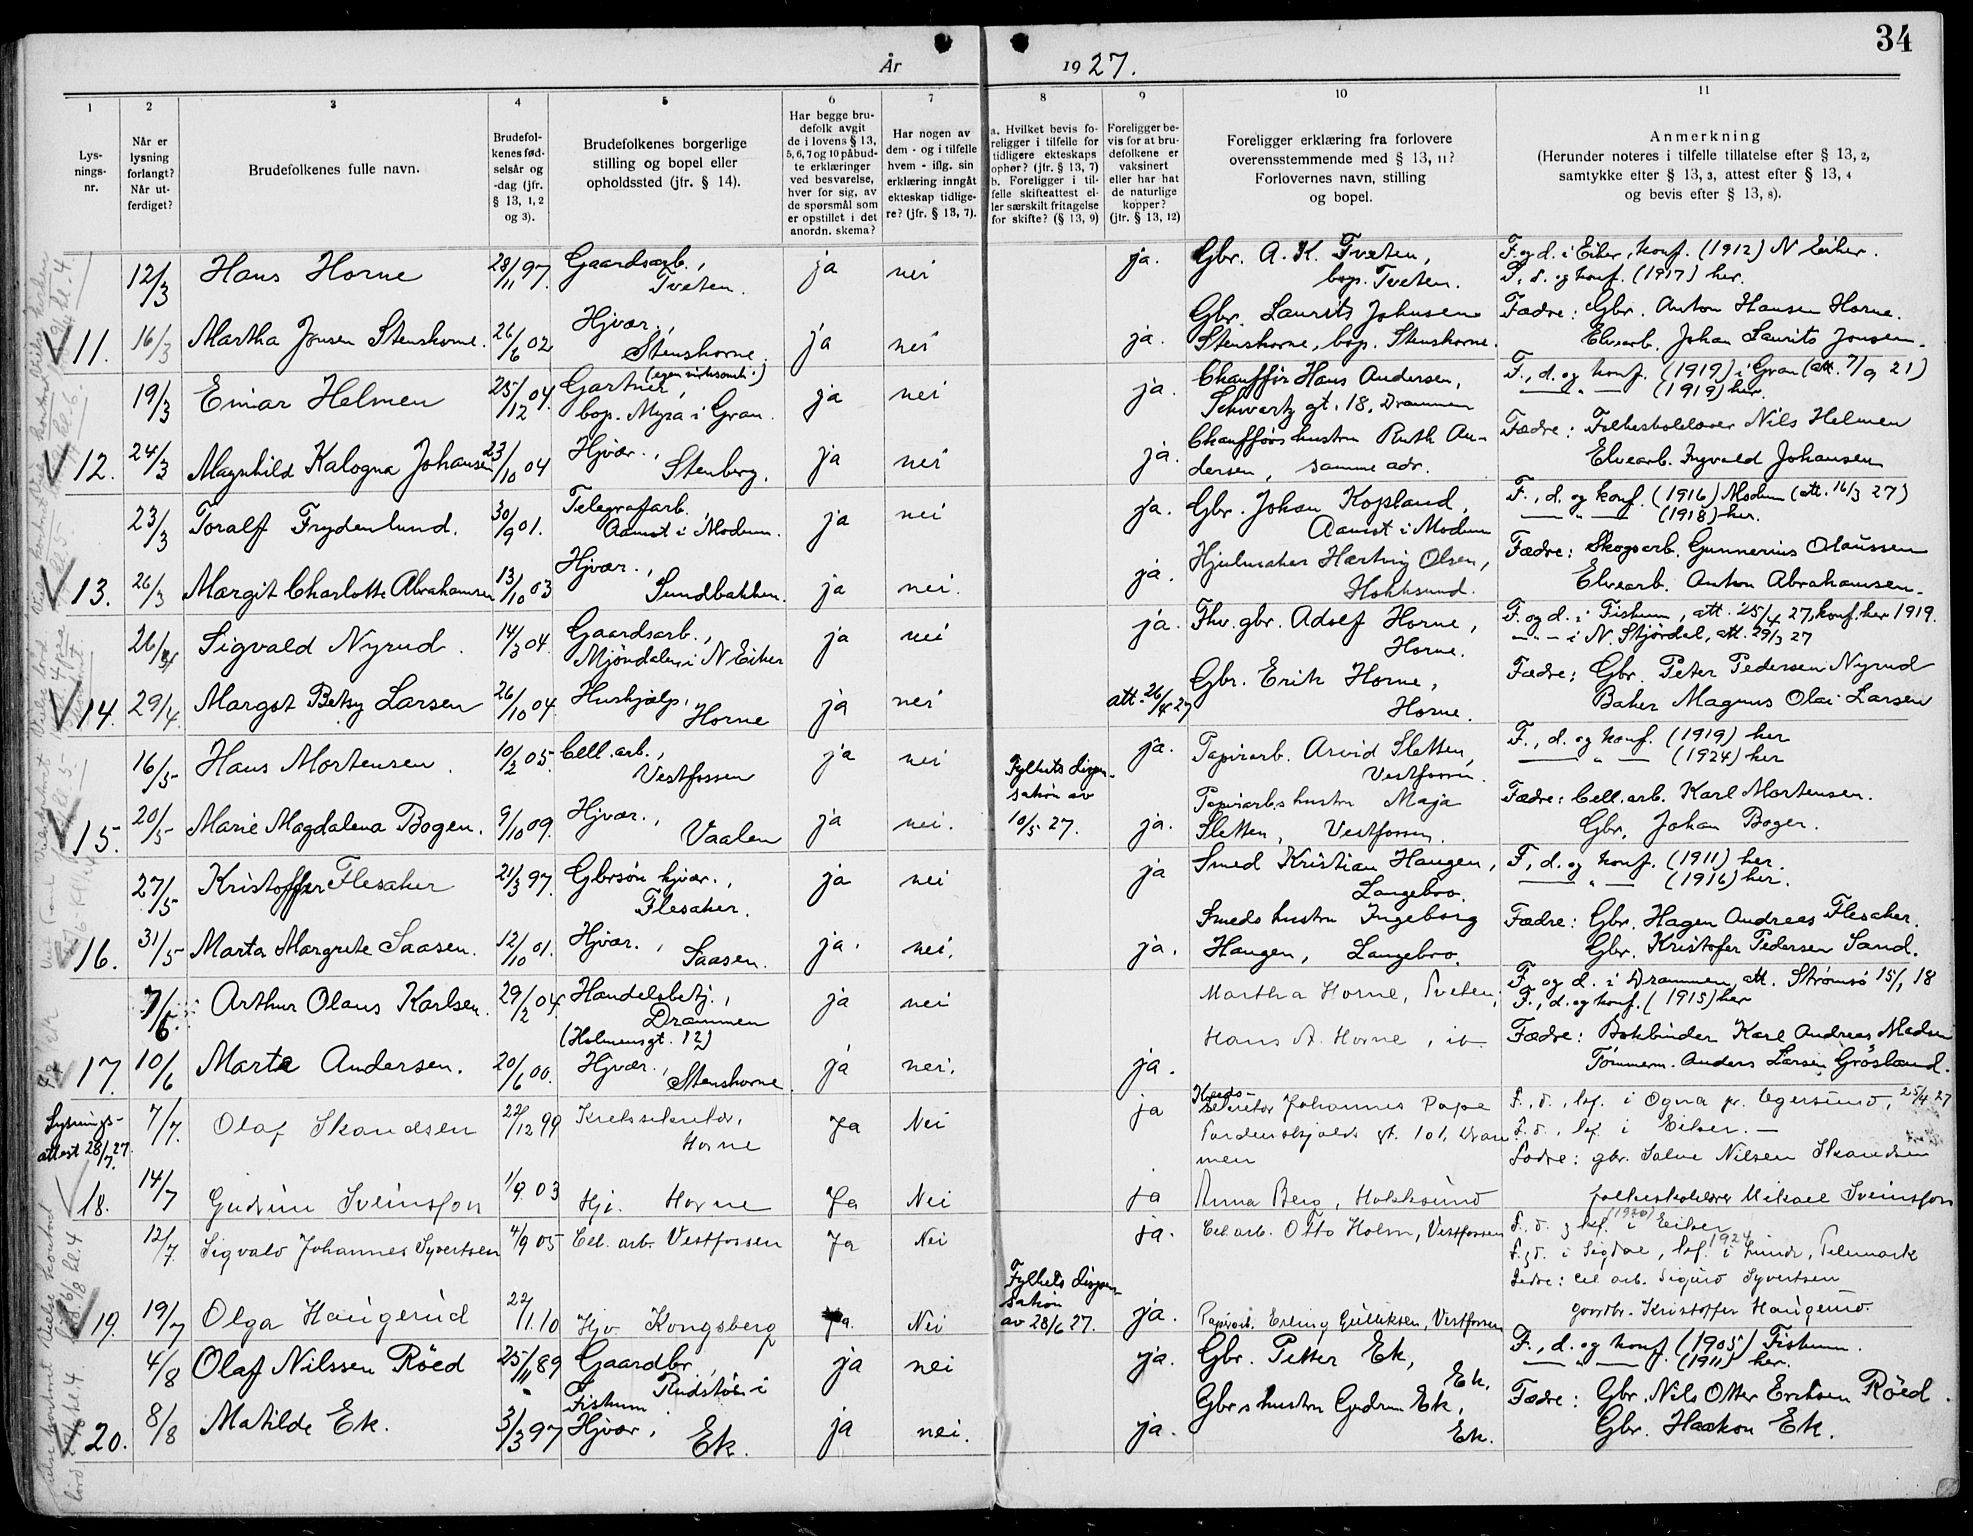 34
År 1927.
1 2 3 4 5 6 7 8 9 10 11
Lysnings-nr.
Når er lysning forlangt? Når utferdiget?
Brudefolkenes fulle navn.
Brudefolkenes fødselsår og -dag (jfr. § 13, 1, 2 og 3).
Brudefolkenes borgerlige stilling og bopel eller opholdssted (jfr. § 14).
Har begge brudefolk avgit de i lovens § 13, 5, 6, 7 og 10 påbudte erklæringer ved besvarelse, hver for sig, av de spørsmål som er opstillet i det anordn. skema?
Har nogen av dem - og i tilfelle hvem - iflg. sin erklæring inngått ekteskap tidligere? (jfr. § 13, 7).
a. Hvilket bevis foreligger i tilfelle for tidligere ekteskaps ophør? (jfr. § 13, 7) b. Foreligger i tilfelle skifteattest eller særskilt fritagelse for skifte? (§ 13, 9)
Foreligger bevis for at brudefolkene er vaksinert eller har hat de naturlige kopper? (jfr. § 13, 12)
Foreligger erklæring fra forlovere overensstemmende med § 13, 11? Forlovernes navn, stilling og bopel.
Anmerkning (Herunder noteres i tilfelle tillatelse efter § 13, 2, samtykke efter § 13, 3, attest efter § 13, 4 og bevis efter § 13, 8).
12/3 Hans Horne 28/11 97. Gaardsarb., Tveten. ja nei ja. Gbr. A. K. Tveten, bop. Tveten. F. og d. i Eiker, konf. (1912) N Eiker.
F., d. og konf. (1917) her.
11. 16/3 Martha Jonsen Stenshorne. 26/6 02 Hjvær., Stenshorne. ja nei ja. Gbr. Laurits Johnsen Stenshorne, bop. Stenshorne. Fædre: Gbr. Anton Hansen Horne.
Elvearb. Johan Laurits Jonsen.
19/3 Einar Helmen 25/12 04. Gartner, (egen virksomh.) bop. Myra i Gran. ja nei ja. Chauffør Hans Andersen, Schwartz gt. 18, Drammen F., d. og konf. (1919) i Gran (att. 7/9 21)
— " — (1919) her.
12. 24/3 Magnhild Kalogna Johansen 23/10 04 Hjvær., Stenberg. ja nei ja. Chaufførshustru Ruth Andersen, samme adr. Fædre: Folkeskolelærer Nils Helmen
Elvearb. Ingvald Johansen
23/3 Toralf Frydenlund. 30/9 01. Telegrafarb. Aamot i Modum. ja nei ja. Gbr. Johan Kopland, Aamot i Modum F., d. og konf. (1916) Modum (att. 16/3 27)
— " — (1918) her.
13. 26/3 Margit Charlotte Abrahamsen 13/10 03 Hjvær., Sundbakken. ja nei. ja. Hjulmaker Hartvig Olsen, Hokksund. Fædre: Skogsarb. Gunnerius Olaussen
Elvearb. Anton Abrahamsen.
26/4 Sigvald Nyrud. 14/3 04. Gaardsarb., Mjöndalen i N Eiker ja nei ja. Fhv. gbr. Adolf Horne, Horne. F. og d. i Fiskum, att. 25/4 27, konf. her 1919.
— " — i N. Stjördal, att. 29/3 27
14. 29/4. Margot Betsy Larsen 26/10 04. Hushjælp, Horne ja nei att. 26/4 27 Gbr. Erik Horne, Horne. Fædre: Gbr. Peter Pedersen Nyrud
Baker Magnus Olai Larsen
16/5 Hans Mortensen. 10/2 05. Cell.arb., Vestfossen ja nei ja. Papirarb. Arvid Sletten, Vestfossen. F., d. og konf. (1919) her
— " — (1924) her
15. 20/5 Marie Magdalena Bogen. 9/10 09. Hjvær., Vaalen ja nei. Fylkets dispensation av 10/5 27. ja. Papirarb.s hustru Maja Sletten, Vestfossen. Fædre: Cell.arb. Karl Mortensen.
Gbr. Johan Bogen.
27/5 Kristoffer Flesaker 21/3 97. Gbrsøn hjvær., Flesaker. ja nei ja Smed Kristian Haugen, Langebro. F., d. og konf. (1911) her.
— " — (1916) her.
16. 31/5 Marta Margrete Saasen. 12/10 01. Hjvær., Saasen. ja. nei. ja. Smeds hustru Ingeborg Haugen, Langebro. Fædre: Gbr. Hagen Andreas Flesaker.
Gbr. Kristofer Pedersen Sand.
7/6. Arthur Olaus Karlsen. 29/2 04 Handelsbetj., Drammen (Holmensgt. 12) ja nei Martha Horne, Tveten, F. og d. i Drammen, att. Strømsø 15/1 18
F., d. og konf. (1915) her
17. 10/6 Marta Andersen. 20/6 00. Hjvær., Stenshorne. ja nei. ja. Hans A. Horne, ib. Fædre: Bokbinder Karl Andreas Madsen
Tömmerm. Anders Larsen Grösland.
Lysningsattest 28/7 27.
7/7. Olaf Skandsen 22/12 99 Kretssekretær, Horne Ja Nei ja Kredssekretær Johannes Pape Tordenskjolds gt. 101, Drammen F., d., kf. i Ogna pr. Egersund, 25/4 27
F., d., kf. i Eiker. —
18. 14/7 Gudrun Sveinsson 1/9 03 Hjv. Horne Ja Nei ja Anna Berg, Hokksund Fædre: gbr. Salve Nilsen Skandsen
folkeskolelærer Mikael Sveinsson
12/7. Sigvald Johannes Syvertsen 4/9 05 Cel. arb. Vestfossen Ja Nei ja. Cel. arb. Otto Holm, Vestfossen F., d. & kf. (1920) i Eiker
F. & d. i Sigdal, kf. 1924 i Lunde, Telemark
19. 19/7 Olga Haugerud 22/1.10 Hjv Kongsberg Ja. Nei Fylkets dispensation av 28/6 27. ja. Papirarb. Erling Gulliksen, Vestfossen Fædre: cel arb. Sigurd Syvertsen
gaardbr. Kristoffer Haugerud.
4/8 Olaf Nilssen Röed 25/11 89 Gaardbr., Rudstöen i Fiskum ja nei ja. Gbr. Petter Ek, Ek. F., d. og konf (1905) Fiskum.
— " — (1911) her.
20. 8/8 Matilde Ek. 3/3 97 Hjvær, Ek. ja nei. ja. Gbrs hustru Gudrun Ek, Ek. Fædre: Gbr. Nils Otter Eriksen Röed.
Gbr. Haakon Ek.